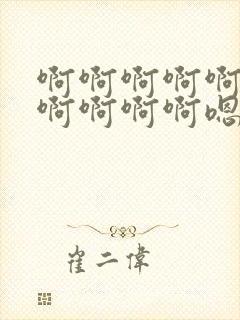 啊啊啊啊啊
啊啊啊啊嗯
崔二偉